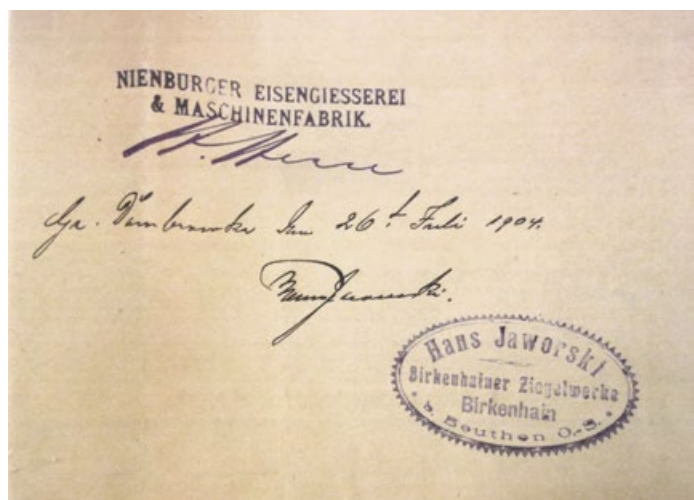 NIENBURGER EISENGIESSEREI
& MASCHINENFABRIK.
Gr. Dombrowka den 26t. Juli 1904.
Hans Jaworski.
Hans Jaworski
Birkenhainer Ziegelwerke
Birkenhain
b. Beuthen O.-S.